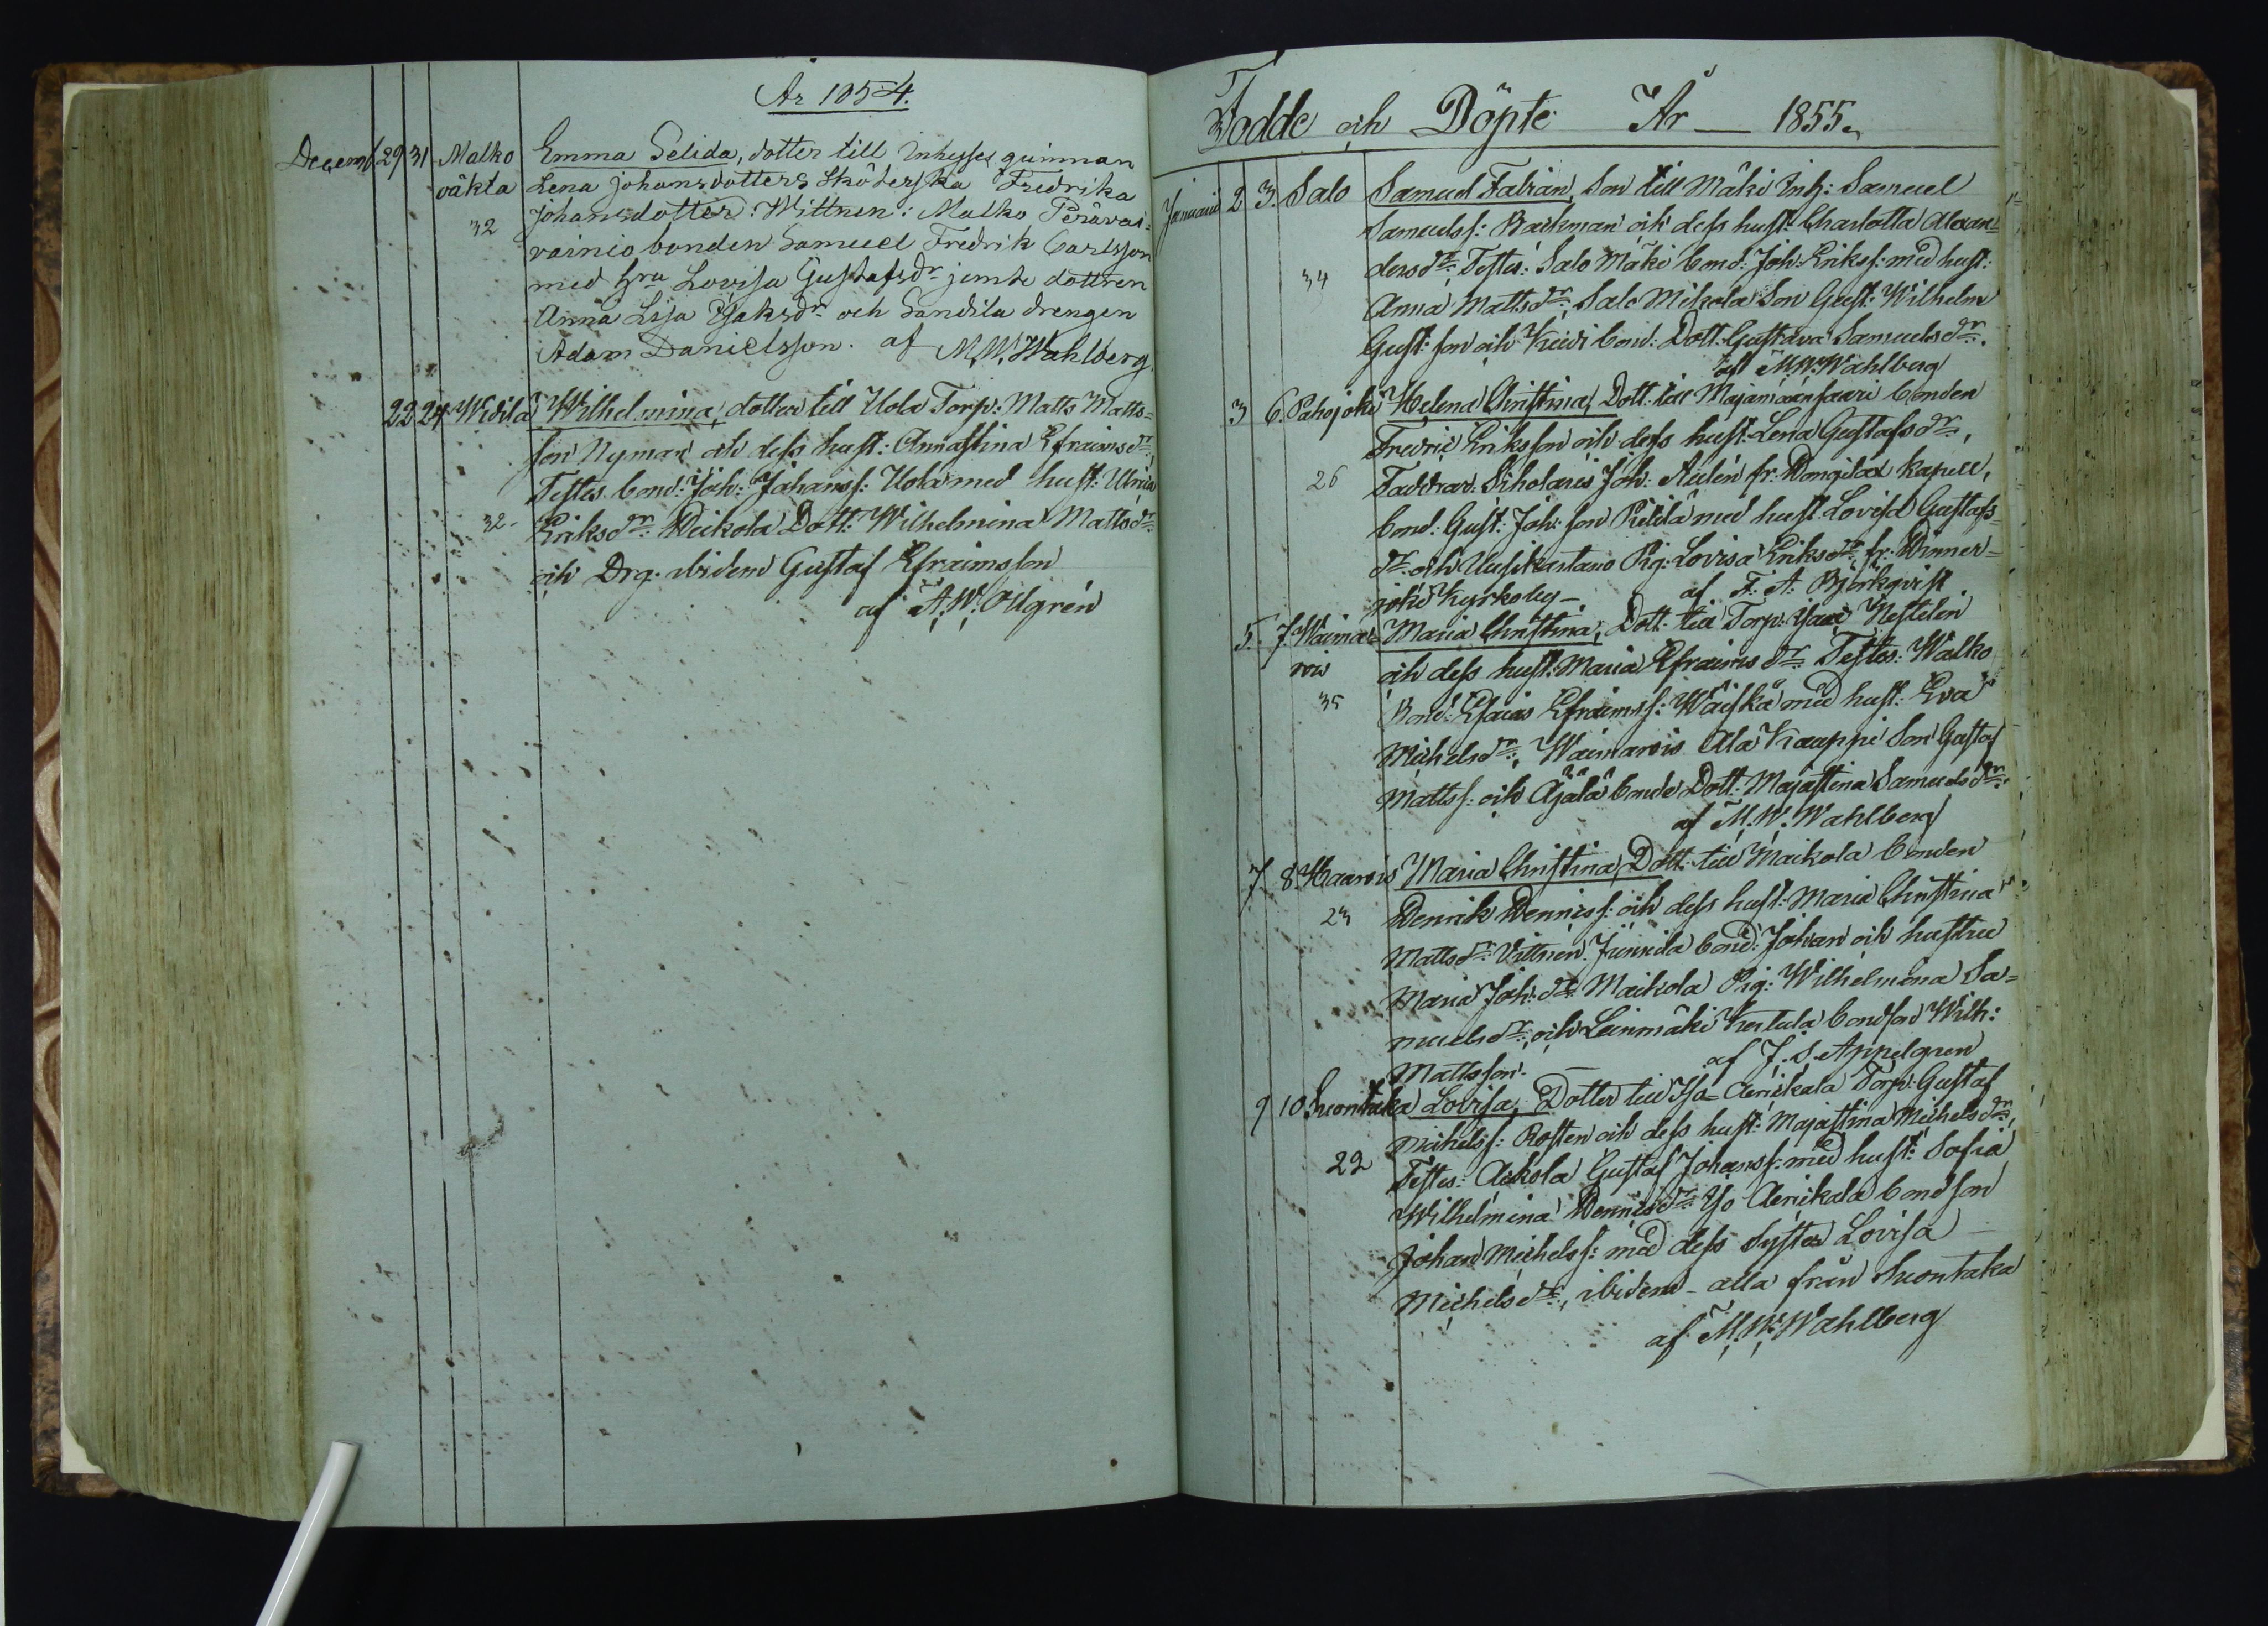 År 1854.
Decemb 29 31 Malko Emma Selida, dotter till Inhyses quinnan
väkta Lena Johansdotters Sköterska Fredrika
32 Johansdotter: Wittnen: Malko Perävai=
vainio bonden Samuel Fredrik Carlsson
med hru Lovisa Gustafsdr jemte dottren
Anna Lisa Isaksdr och Sandila drengen
Adam Danielsson. af M.W. Wahlberg
22 24 Widila Wilhelmina, dotter till Uola Torp: Matts Matts=
son Nyman och dess hust: Annastina Efraimsdr:
Testes bond: Joh: Johanss: Uola med hust: Ulrica
32- Eriksdr: Heikola Dott: Wilhelmina Mattsdr:
och Drg. ibidem Gustaf Efraimsson
af A. W. Ollgrén
Födde och Döpte År — 1855.
Januarii 2 3. Salo Samuel Fabian, Son till Mäki Inh: Samuel
Samuelss: Backman och dess hust: Charlotta Alexan=
34 dersdr: Testes: Salo Mäki bond: Joh: Erikss: med hust:
Anna Mattsdr:, Salo Mikola Son Gust: Wilhelm
Gust: son och bond: Dott: Gustava Samuelsdr:
af M.W. Wahlberg
3 6. Pahojoki Helena Christina, Dott: till Majamaansaari bonden
Fredric Eriksson och dess hust: Lena Gustafsdr:,
26 Faddrar: Scholaris Joh: Aulén fr: Hongilax Kapell,
bond: Gust: Joh: son Pietilä med hust: Lovisa Gustafs=
dr: och Uusikartano Pig: Lovisa Eriksdr: fr: Hinner=
joki Kyrkoby — af F. A. Björkqvist
5. 7. Waima= Maria Christina, Dott: till Torp: Isaac Nestelin
rois och dess hust: Maria Efraimsdr: Testes: Walko
35 Bond: Esaias Efraimss: Wäiskä med hust: Eva
Michelsdr:, Waimarois Ala Kauppi Son Gustaf
Mattss: och Äjälä bonde Dott: Majastina Samuelsdr:
af M. W. Wahlberg
7. 8. Haarois Maria Christina, Dott: till Maikola bonden
23 Henrik Henrics: och dess hust: Maria Christina
Mattsdr: Vittnen: Junnila bond: Johan och hustru
Maria Joh: dr: Maikola Pig: Wilhelmina Sa=
muelsdr:, och Leinmäki Kertula bondson Wilh:
Mattsson. — af J. S. Appelgren
9 10 Suontaka Lovisa, Dotter till Iso= Aerickala Torp: Gustaf
Michelss: Rosten och dess hust: Majastina Michelsdr:,
22 Testes: Aikola Gustaf Johanss: med hust: Sofia
Wilhelmina Henricsdr: Iso Aerickala bondson
Johan Michelss: med dess syster Lovisa —
Michelsdr:, ibidem — alla från Suontaka
af M. W. Wahlberg